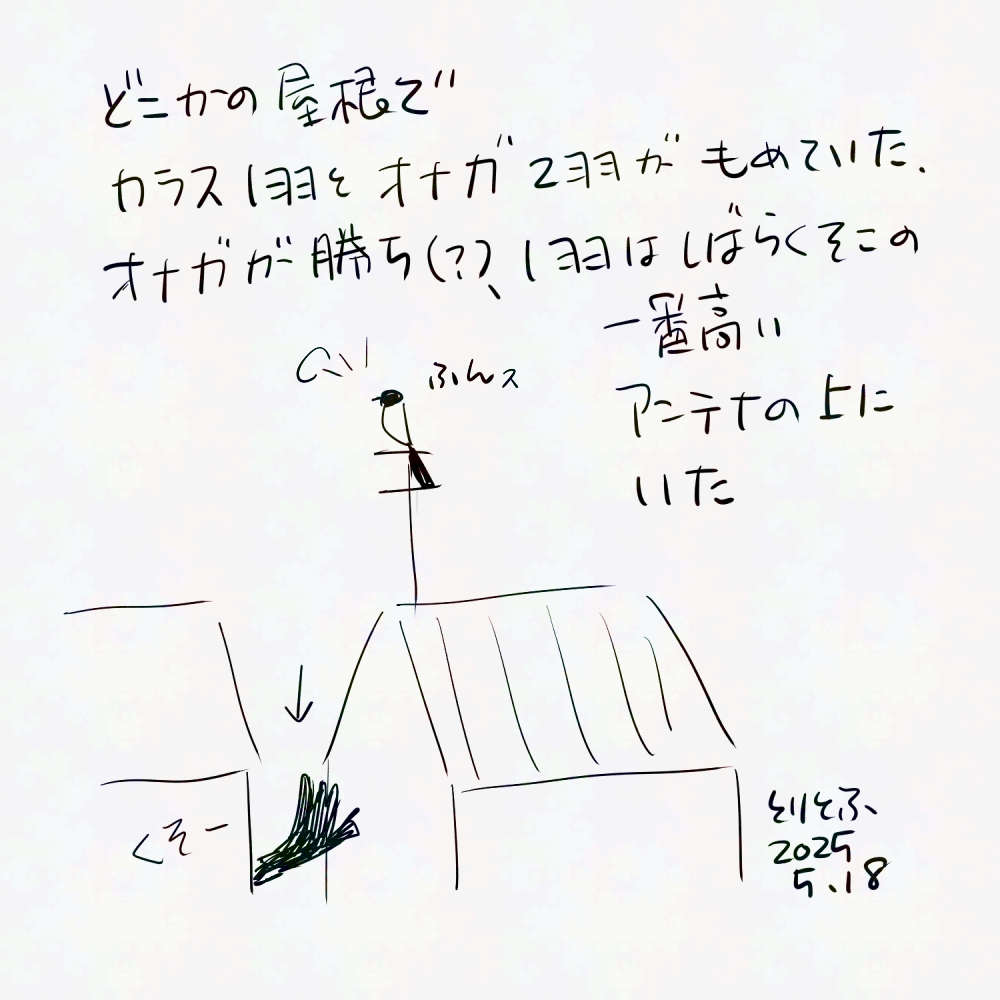 どこかの屋根で
カラス1羽とオナガ2羽がもめていた.
オナガが勝ち(?)、1羽はしばらくそこの
一番高い
アンテナの上に
いた
ふんス
くそー
とりとふ、
2025
5.18